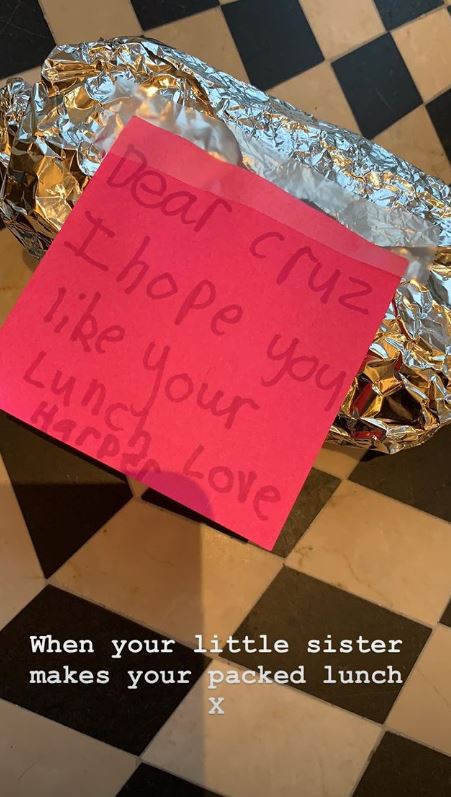 Dear cruz
I hope you
like your
Lunch Love
Harper
When your little sister
makes your packed lunch
X